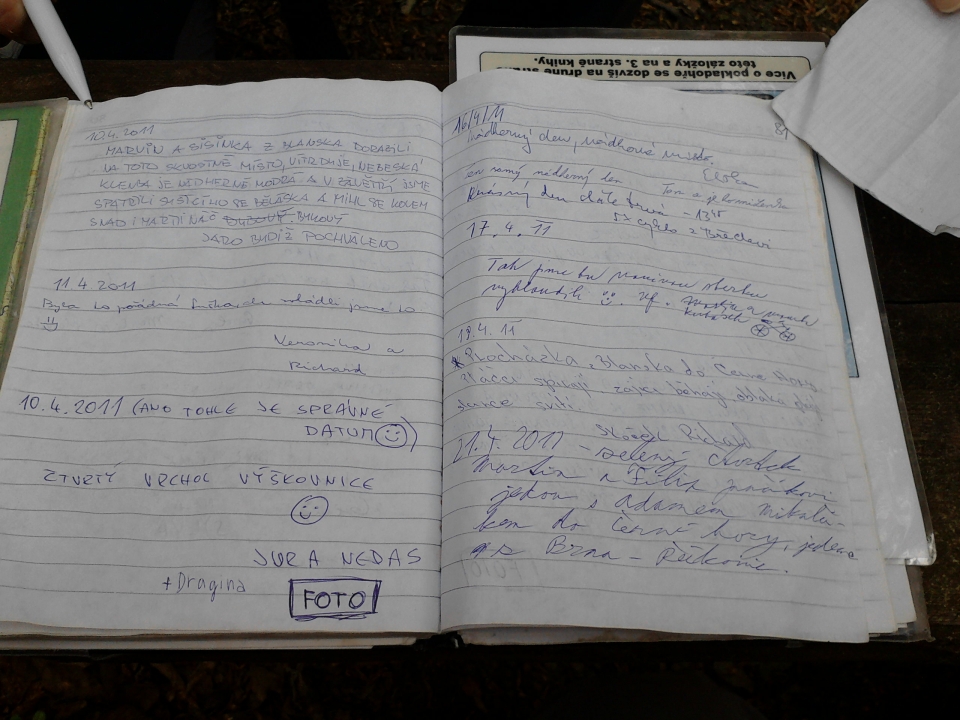 Více o pokladohře se dozvíš na druhé straně
této záložky a na 3. straně knihy.
10.4.2011
MARVIN A SISINKA Z BLANSKA DORAZILI
NA TOTO SKVOSTNÉ MÍSTO, VÍTR DUJE, NEBESKÁ
KLENBA JE NÁDHERNĚ MODRÁ A V ZÁVĚTŘÍ JSME
SPATŘILI A MIHL SE KOLEM
SNAD I MARTINÁČ BUKOVÝ
JARO BUDIŽ POCHVÁLENO
11.4 2011
Byla to pořádná ale zvládli jsme to
Veronika a
Richard
10.4.2011 (ANO TOHLE JE SPRÁVNÉ
DATUM ☺)
ČTVRTÝ VRCHOL VÝŠKOVNICE
☺
JURA NEDAS
+Dragina
FOTO
81
16/4/11
Nádherný den, nádherné místo.
Ten samý nádherný den
Krásný den stále trvá - 13 45
5x cyklo z Břeclavi
17. 4. 11
Tak jsme tu
vybloudili ☺.
18.4. 11
Procházka z Blanska do Černé Hory.
Ptáčci zpívají zajíci běhají, obláka plují
slunce svítí.
Richard
21.4. 2011 - zelený čtvrtek
Martin a Filip
jedou s Adamem
kem do Černé hory, jedeme
z Brna - Řečkovic.